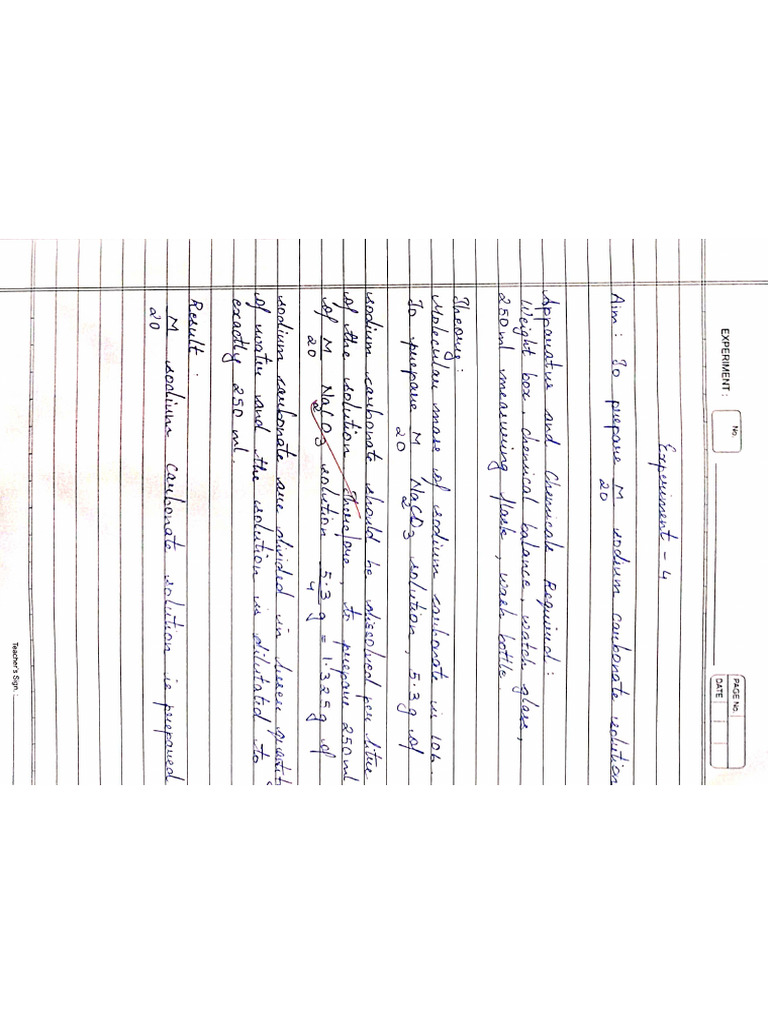 EXPERIMENT :
No.
PAGE No.
DATE
Experiment - 4
Aim : To prepare M/20 sodium carbonate solution
Apparatus and Chemicals Required :
Weight box, chemical balance, watch glass,
250 ml measuring flask, wash bottle.
Theory :
Molecular mass of sodium carbonate is 106.
To prepare M/20 Na2CO3 solution, 5.3 g of
sodium carbonate should be dissolved per litre
of the solution. Therefore, to prepare 250 ml
of M/20 Na2CO3 solution, 5.3/4 g = 1.325 g of
sodium carbonate are divided in
of water and the solution is dilutated to
exactly 250 ml.
Result :
M/20 sodium carbonate solution is prepared
Teacher's Sign.: